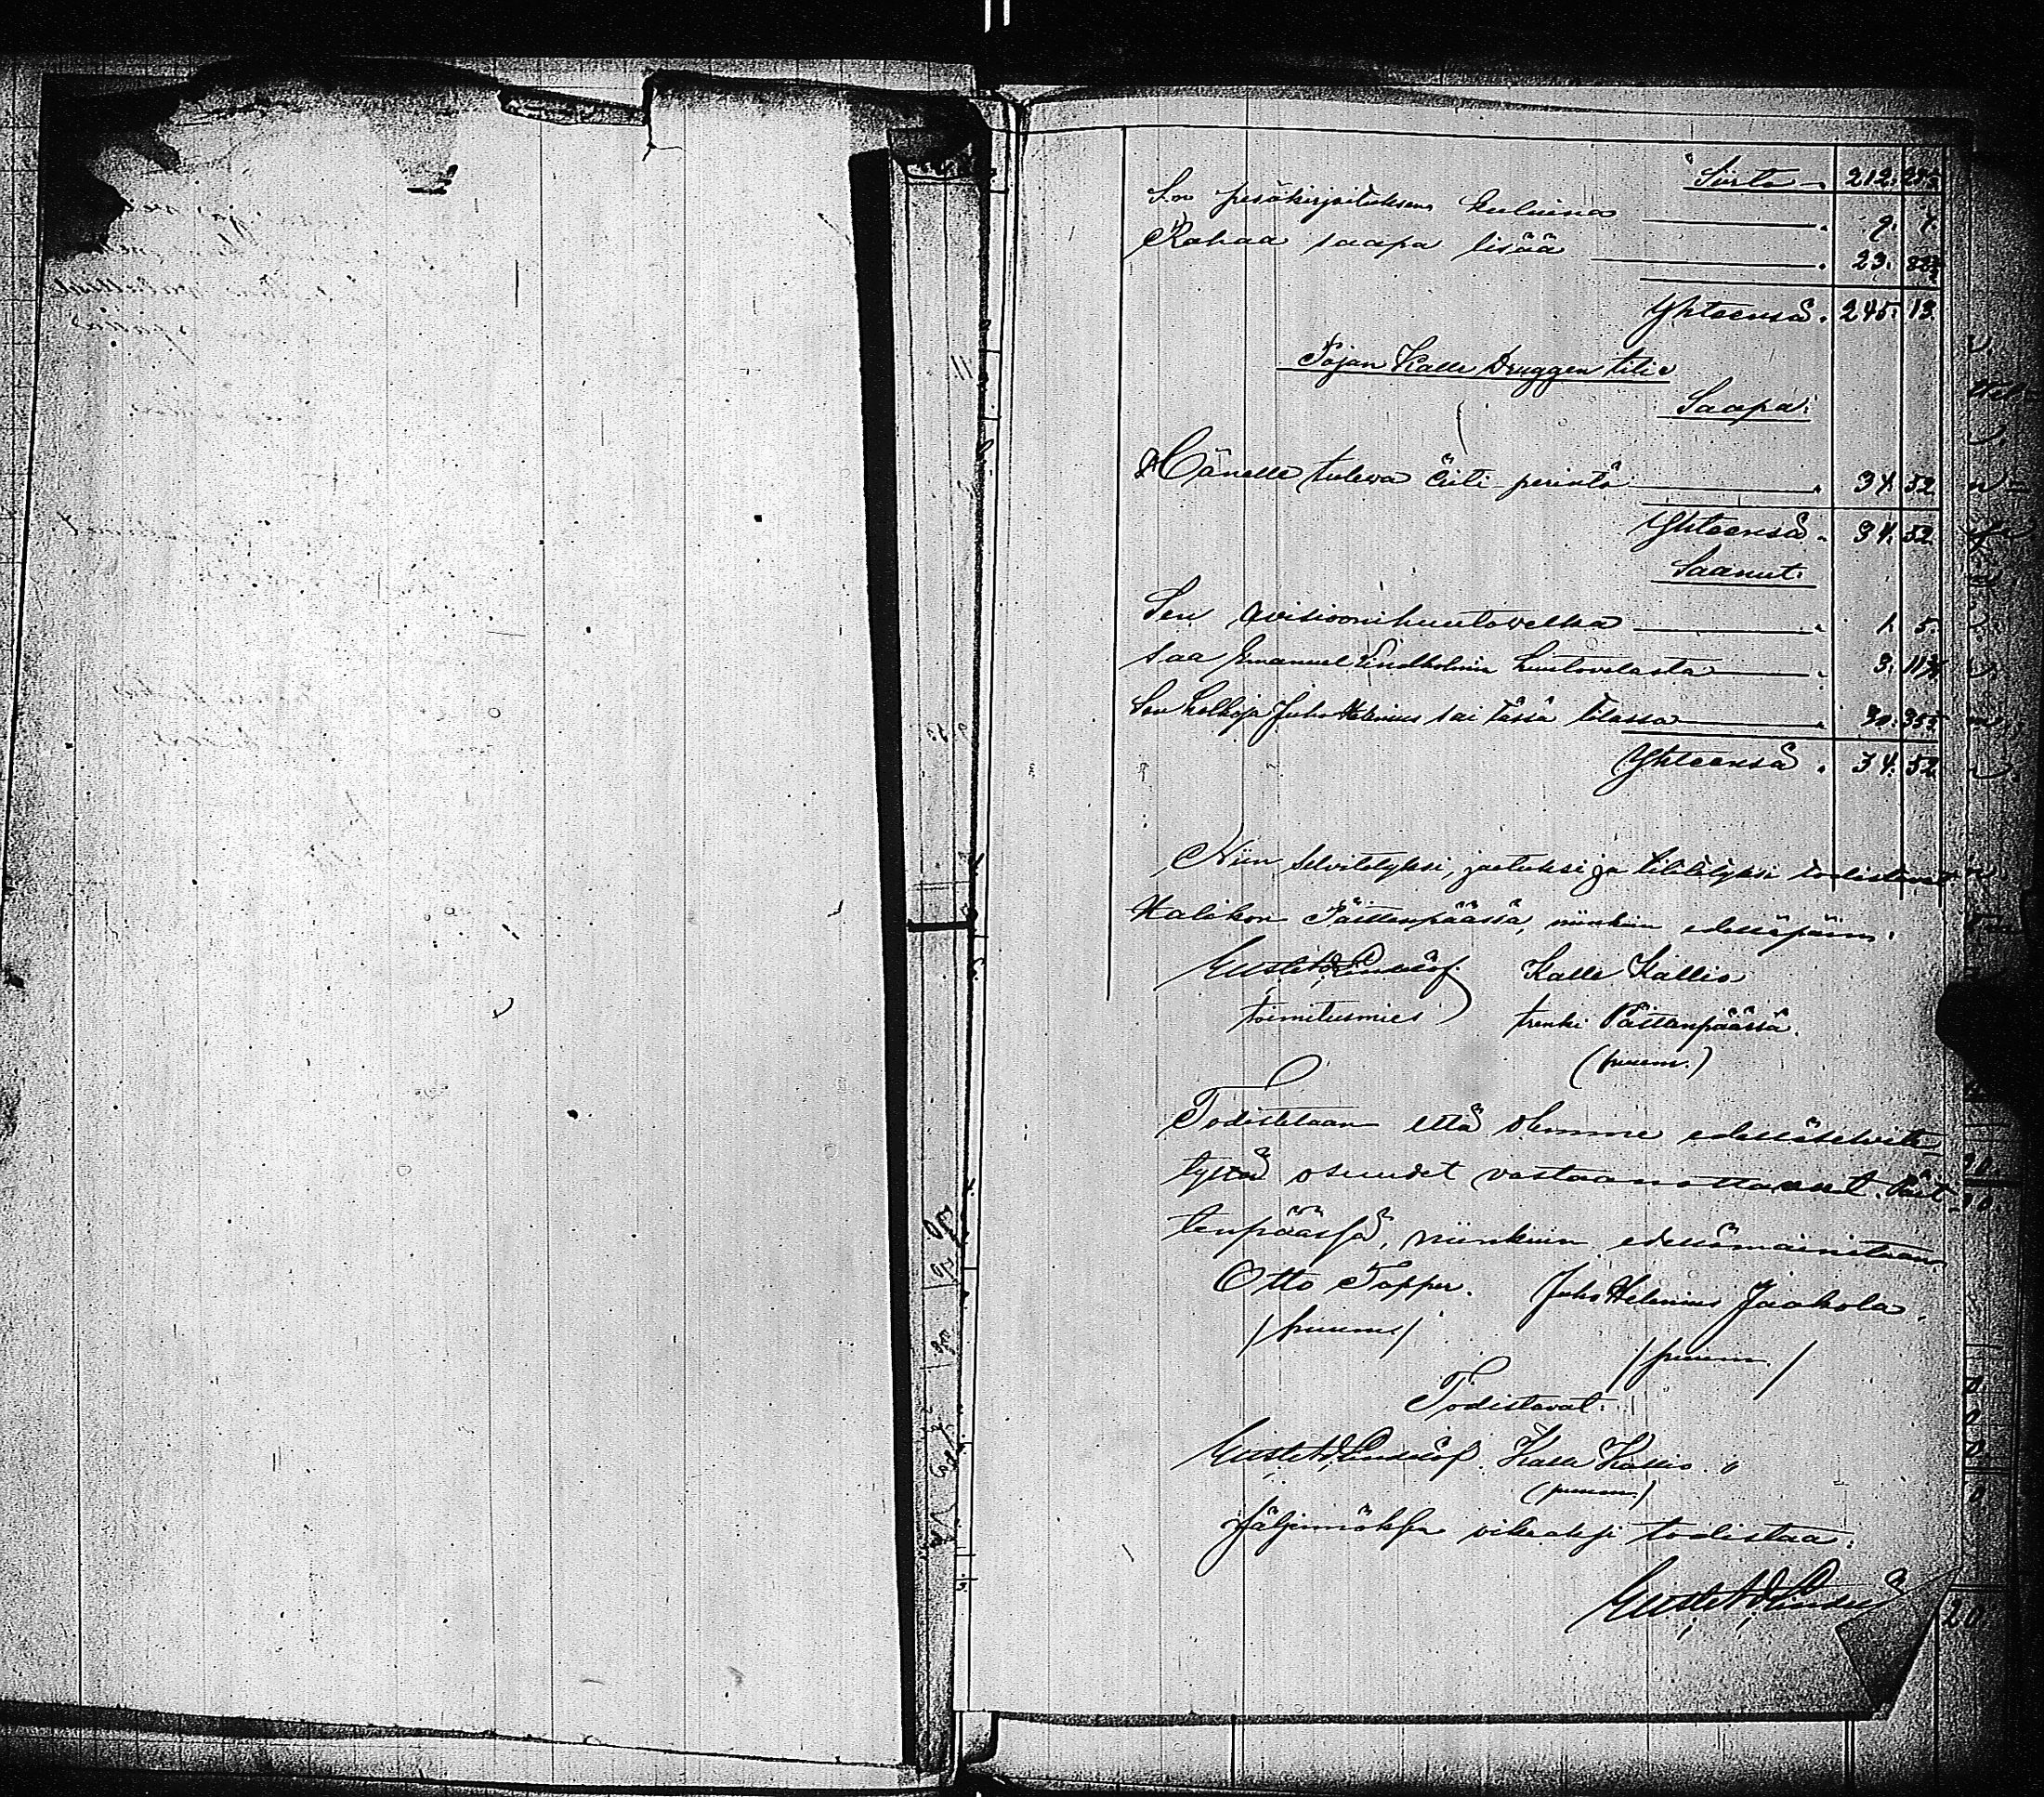 Siirto 212. 23 5/
S:n pesäkirjoituksen kuluina 9. 7.
Rahaa saapa lisää 23. 82 1/2
Yhteensä. 245. 13
Pojan Kalle Druggen tili
Saapa:
Hänelle tuleva Äiti-perintö 34. 52
Yhteensä. 34. 52
Saanut:
Sen auksioonihuutovelka 1. 5.
saa Emanuel Lindholmin huutovelasta 3. 11
Sen holhoja Juho Helenius sai tässä tilassa 30. 35 5/
Yhteensä. 34. 52
Niin selvitetyksi, jaetuksi ja tilitetyksi todistavat
Halikon Pättenpäässä, niinkuin edelläpäin.
Gust. Ad. Lindelöf. Kalle Kallio
toimitusmies) trenki Pättenpäässä.
(puum.)
Todistetaan että olemme edelläselvite-
tyt osuudet vastaanottaneet. Pät-
tenpäässä, niinkuin edellämainitaan
Otto Topper. Juho Helenius Jaakola.
/puum/
/puum./
Todistavat:
Gust. Ad. Lindelöf. Kalle Kallio.
(puum.)
Jäljennöksen oikeaksi todistaa:
Gust. Ad. Lindelöf